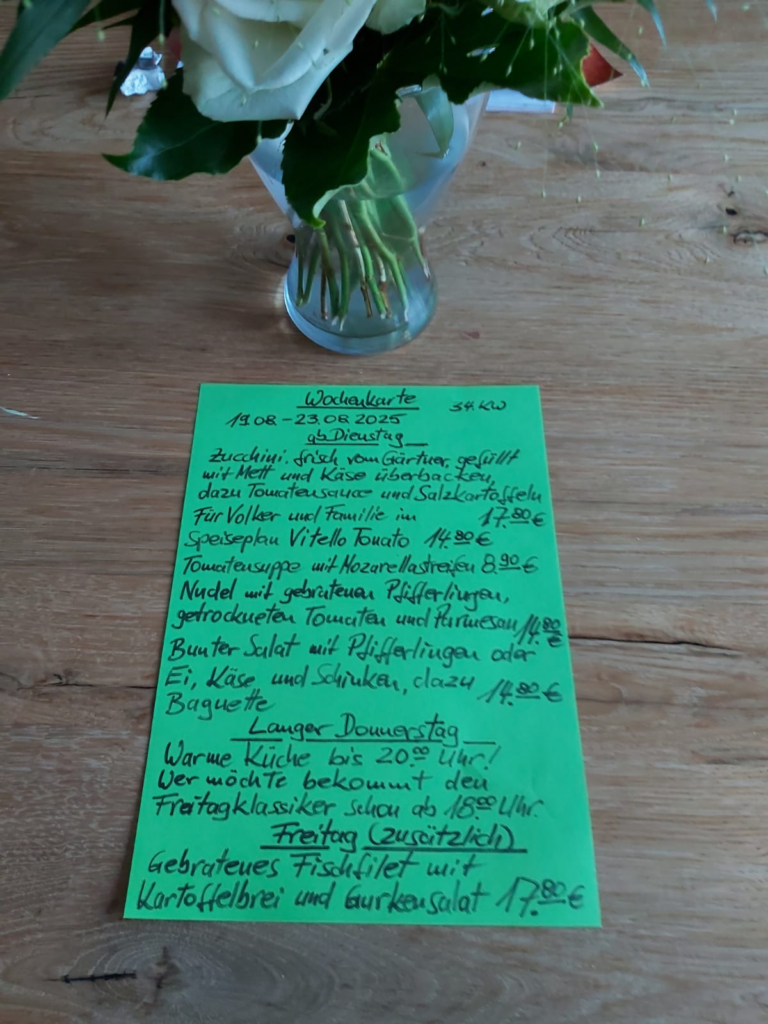 Wochenkarte 34. KW
19.08. - 23.08.2025
ab Dienstag
Zucchini, frisch vom Gärtner, gefüllt
mit Mett und Käse überbacken,
dazu Tomatensauce und Salzkartoffeln
Für Volker und Familie im 17.80 €
Speiseplan Vitello Tonato 14.80 €
Tomatensuppe mit Mozarellastreifen 8.90 €
Nudel mit gebratenen Pfifferlingen,
getrockneten Tomaten und Parmesan 14.80 €
Bunter Salat mit Pfifferlingen oder
Ei, Käse und Schinken, dazu 14.80 €
Baguette
Langer Donnerstag
Warme Küche bis 20.00 Uhr!
Wer möchte bekommt den
Freitagklassiker schon ab 18.00 Uhr.
Freitag (zusätzlich)
Gebratenes Fischfilet mit
Kartoffelbrei und Gurkensalat 17.80 €